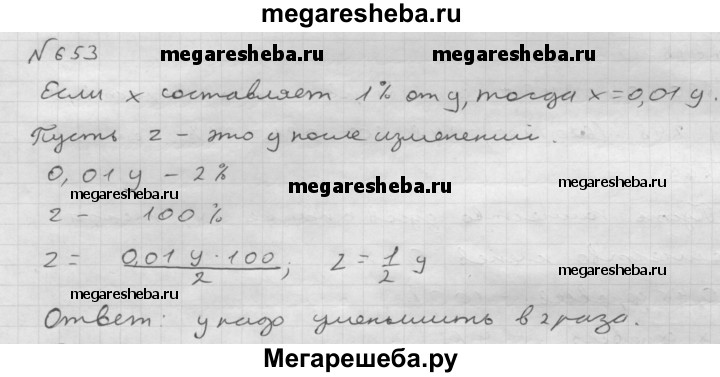 megaresheba.ru
№653
megaresheba.ru
megaresheba.ru
Если x составляет 1% от y, тогда x=0,01 y.
Пусть z - это y после изменений.
0,01 y - 2%
megaresheba.ru
megaresheba.ru
megaresheba.ru
z - 100%
z = 0,01 y · 100 / 2 ; z = 1/2 y
megaresheba.ru
megaresheba.ru
megaresheba.ru
Ответ: y надо уменьшить в 2 раза.
Мегарешеба.ру